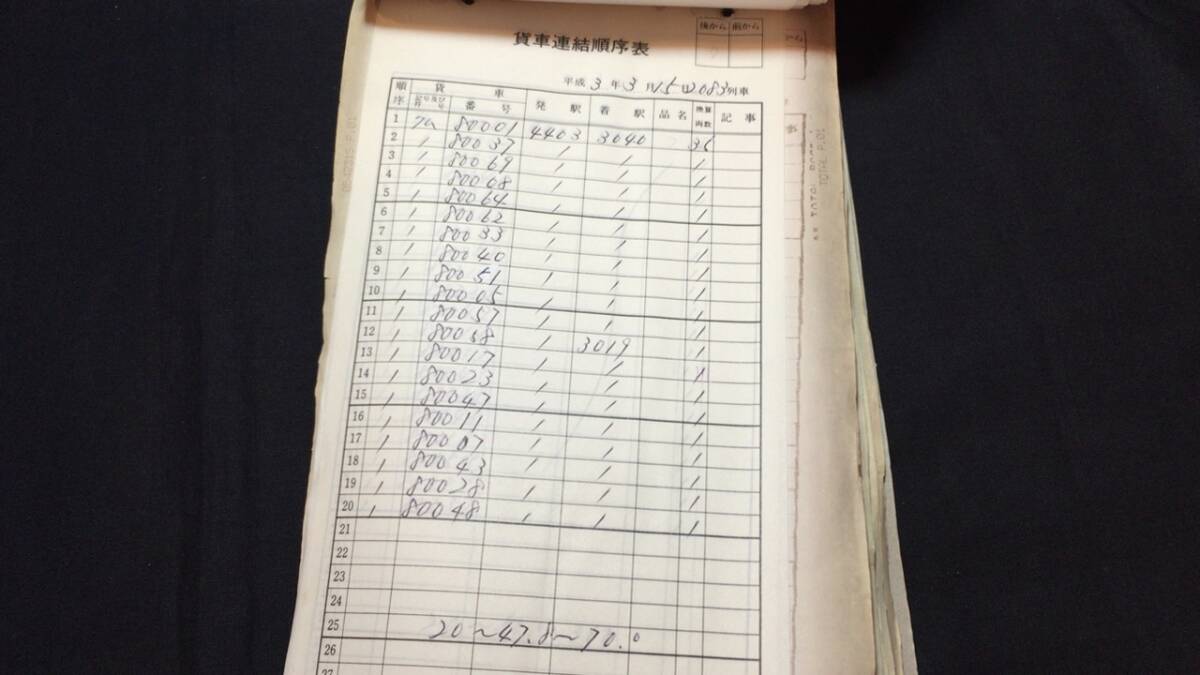 貨車連結順序表
後から 前から
平成 3 年 3 月 15 日 2083 列車
順序 貨車 発駅 着駅 品名 換算両数 記事
記号及び符号 番号
1 80001 4403 3040 35
2 〃 80037 〃 〃 〃
3 〃 80069 〃 〃 〃
4 〃 80008 〃 〃 〃
5 〃 80064 〃 〃 〃
6 〃 80062 〃 〃 〃
7 〃 80033 〃 〃 〃
8 〃 80040 〃 〃 〃
9 〃 80051 〃 〃 〃
10 〃 80005 〃 〃 〃
11 〃 80057 〃 〃 〃
12 〃 80038 〃 3019 〃
13 〃 80017 〃 〃 〃
14 〃 80023 〃 〃 〃
15 〃 80047 〃 〃 〃
16 〃 80011 〃 〃 〃
17 〃 80007 〃 〃 〃
18 〃 80043 〃 〃 〃
19 〃 80028 〃 〃 〃
20 〃 80048 〃 〃 〃
21
22
23
24
25 20〜47.8〜70.0
26
27
TOTAL P.01